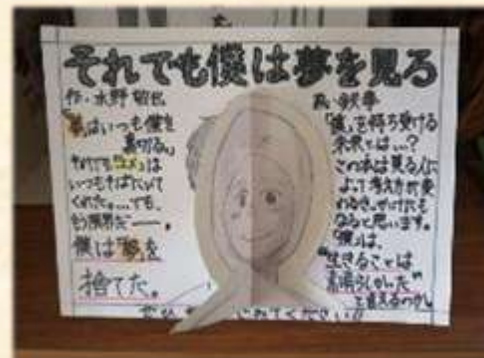 それでも僕は夢を見る
作・水野敬也
画・鉄拳
「夢」はいつも僕を
裏切る。
それでも「ユメ」は
いつもそばにいて
くれた。…でも、
もう限界だ――。
僕は「夢」を
捨てた。
「僕」を待ち受ける
未来とは…?
この本は見る人に
よって考え方が変
なると思います。
「僕」は、
"生きることは
素晴らしかった"
と言えるのか